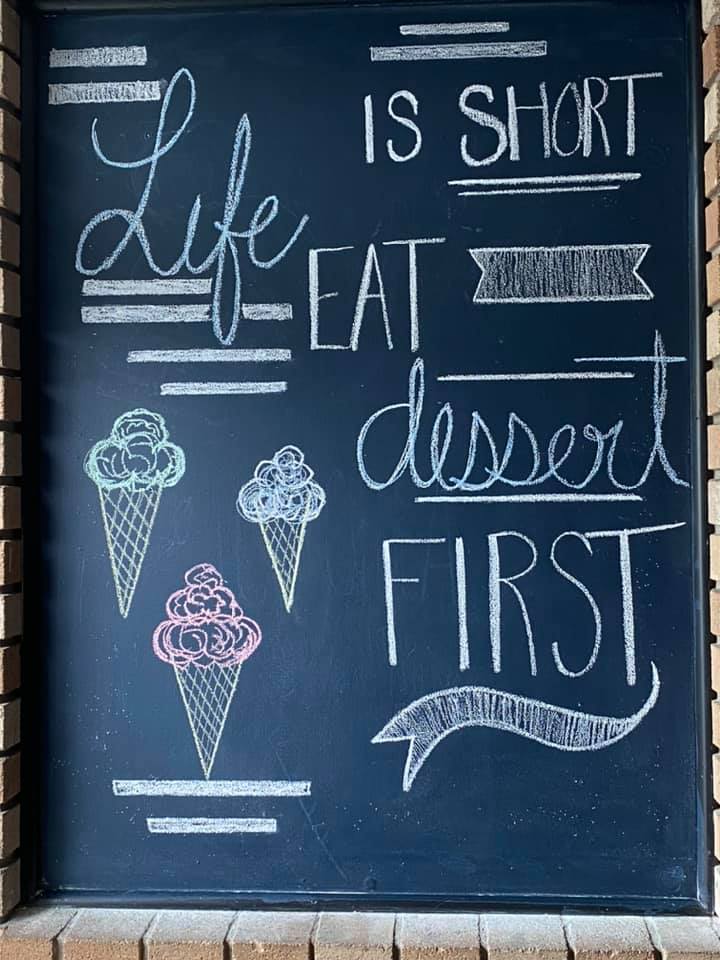 Life IS SHORT
EAT
dessert
FIRST